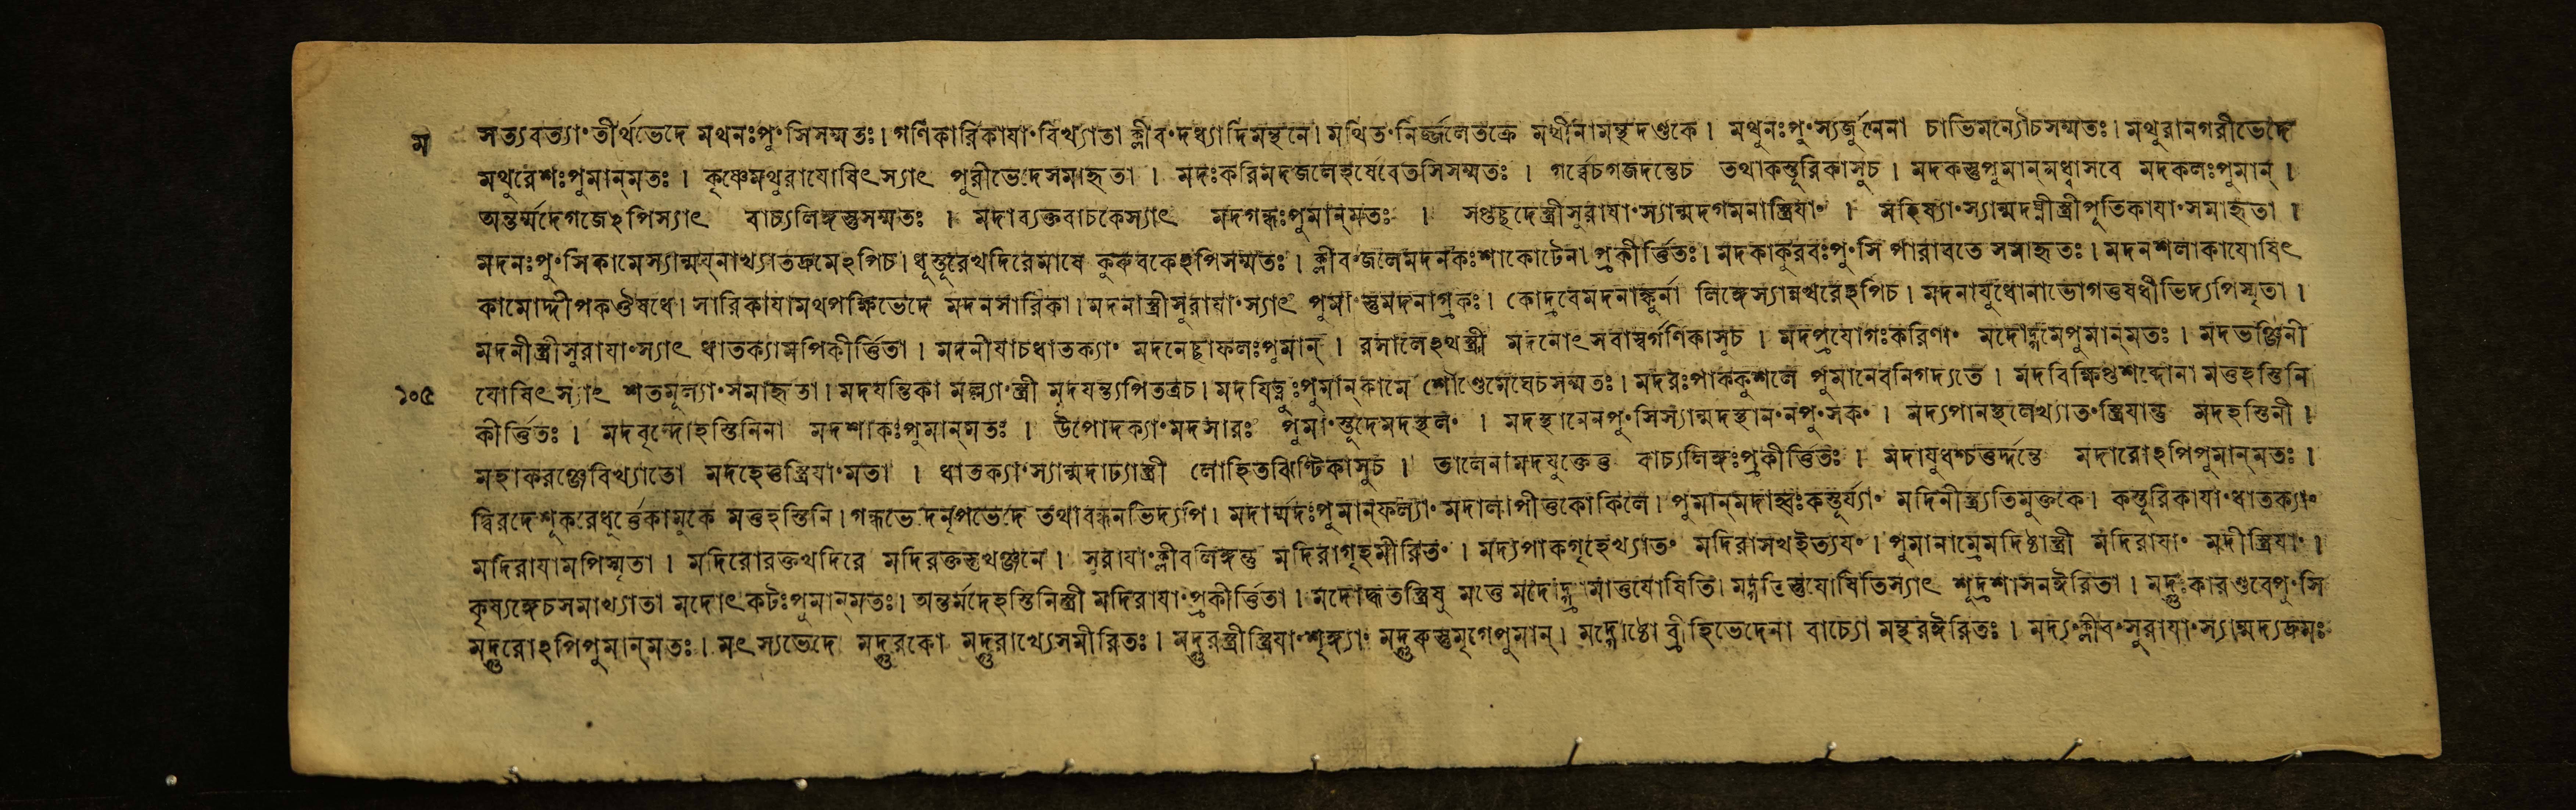 ম সত্যবত্যাং তীর্থভেদে মথনঃপুংসিসম্মতঃ। গণিকারিকাযাংবিখ্যাতা ক্লীবংদধ্যাদিমন্থনে। মথিতংনির্জ্জলেতক্রে মথীনামন্থদণ্ডকে। মথুনঃপুংস্যর্জুনেনা চাভিমন্যৌচসম্মতঃ। মথুরানগরীভেদে
মথুরেশঃপুমান্মতঃ। কৃষ্ণেমথুরাযোষিৎস্যাৎ পুরীভেদেসমাহৃতা। মদঃকরিমদজলেহর্ষেরেতসিসম্মতঃ। গর্ব্বেচগজদন্তেচ তথাকস্তূরিকাসুচ। মদকস্তুপুমান্মধ্বাসবে মদকলঃপুমান্।
অন্তর্ম্মদেগজেঽপিস্যাৎ বাচ্যলিঙ্গস্তুসম্মতঃ। মদাব্যক্তবাচকেস্যাৎ মদগন্ধঃপুমান্মতঃ। সপ্তচ্ছদেস্ত্রীসুরাযাংস্যান্মদগমনাস্ত্রিযাং। মহিষ্যাংস্যান্মদঘ্নীস্ত্রীপূতিকাযাংসমাহৃতা।
মদনঃপুংসিকামেস্যান্মযনাখ্যাতদ্রুমেঽপিচ। ধূস্তূরেখদিরেমাষে কুরুবকেঽপিসম্মতঃ। ক্লীবংজলেমদনকঃশাকোটেনা প্রকীর্ত্তিতঃ। মদকাকুরবঃপুংসি পারাবতে সমাহৃতঃ। মদনশলাকাযোষিৎ
কামোদ্দীপকঔষধে। সারিকাযামথপক্ষিভেদে মদনসারিকা। মদনাস্ত্রীসুরাযাংস্যাৎ পুমাংস্তুমদনাগ্রকঃ। কোদ্রবেমদনাঙ্কুর্না লিঙ্গেস্যান্নখরেঽপিচ। মদনাযুধোনাভোগতুষধীভিদ্যপিস্মৃতা।
মদনীস্ত্রীসুরাযাংস্যাৎ ধাতক্যামপিকীর্ত্তিতা। মদনীযাচধাতক্যাং মদনেচ্ছাফলঃপুমান্। রসালেঽথস্ত্রী মদনোৎসবাস্বর্গণিকাসুচ। মদপ্রযোগঃকরিণাং মদোদ্গমেপুমান্মতঃ। মদভঞ্জিনী
১০৫ যোষিৎস্যাৎ শতমূল্যাংসমাহৃতা। মদযন্তিকা মল্ল্যাংস্ত্রী মদযন্ত্যপিতত্রচ। মদযিত্নুঃপুমান্কামে শৌণ্ডেমেঘেচসম্মতঃ। মদরঃপাককুশলে পুমানেবনিগদ্যতে। মদবিক্ষিপ্তশব্দোনা মত্তহস্তিনি
কীর্ত্তিতঃ। মদবৃন্দোহস্তিনিনা মদশাকঃপুমান্মতঃ। উপোদক্যাংমদসারঃ পুমাংস্তূদেমদস্থলং। মদস্থানেনপুংসিস্যান্মদস্থানংনপুংসকং। মদ্যপানস্থলেখ্যাতংস্ত্রিযান্তু মদহস্তিনী।
মহাকরঞ্জেবিখ্যাতো মদহেতুস্ত্রিযাংমতা। ধাতক্যাংস্যান্মদাঢ্যাস্ত্রী লোহিতঝিণ্টিকাসুচ। তালেনামদযুক্তেতু বাচ্যলিঙ্গঃপ্রকীর্ত্তিতঃ। মদাযুধশ্চতুর্দ্দন্তে মদারোঽপিপুমান্মতঃ।
দ্বিরদেশূকরেধূর্ত্তেকামুকে মত্তহস্তিনি। গন্ধভেদেনৃপভেদে তথাবন্ধনভিদ্যপি। মদার্ম্মদঃপুমান্ফল্যাং মদালাপীতুকোকিলে। পুমান্মদাহ্বঃকস্তূর্য্যাং মদিনীত্ব্যতিমুক্তকে। কস্তূরিকাযাংধাতক্যাং
মদিরাযামপিস্মৃতা। মদিরোরক্তখদিরে মদিরক্তস্তুখঞ্জনে। সুরাযাংক্লীবলিঙ্গন্তু মদিরাগৃহমীরিতং। মদ্যপাকগৃহেখ্যাতং মদিরাসখইত্যযং। পুমানাম্রেমদিষ্ঠাস্ত্রী মদিরাযাং মদীস্ত্রিযাং।
কৃষ্যঙ্গেচসমাখ্যাতা মদোৎকটঃপুমান্মতঃ। অন্তর্মদেহস্তিনিস্ত্রী মদিরাযাংপ্রকীর্ত্তিতা। মদোদ্ধতস্ত্রিষু মত্তে মদোদ্গ্রামাতুযোষিতি। মদ্গতিস্তুযোষিতিস্যাৎ শূদ্রশাসনঈরিতা। মদ্গুঃকারণ্ডবেপুংসি
মদ্গুরোঽপিপুমান্মতঃ। মৎস্যভেদে মদ্গুরকো মদ্গুরাখ্যেসমীরিতঃ। মদ্গুরস্ত্রীস্ত্রিযাংশৃঙ্গ্যাং মদ্গুরুস্তুমৃগেপুমান্। মদ্গোষ্ঠো ব্রীহিভেদেনা বাচ্যো মন্থরঈরিতঃ। মদ্যংক্লীবংসুরাযাংস্যান্মদ্যদ্রুমঃ